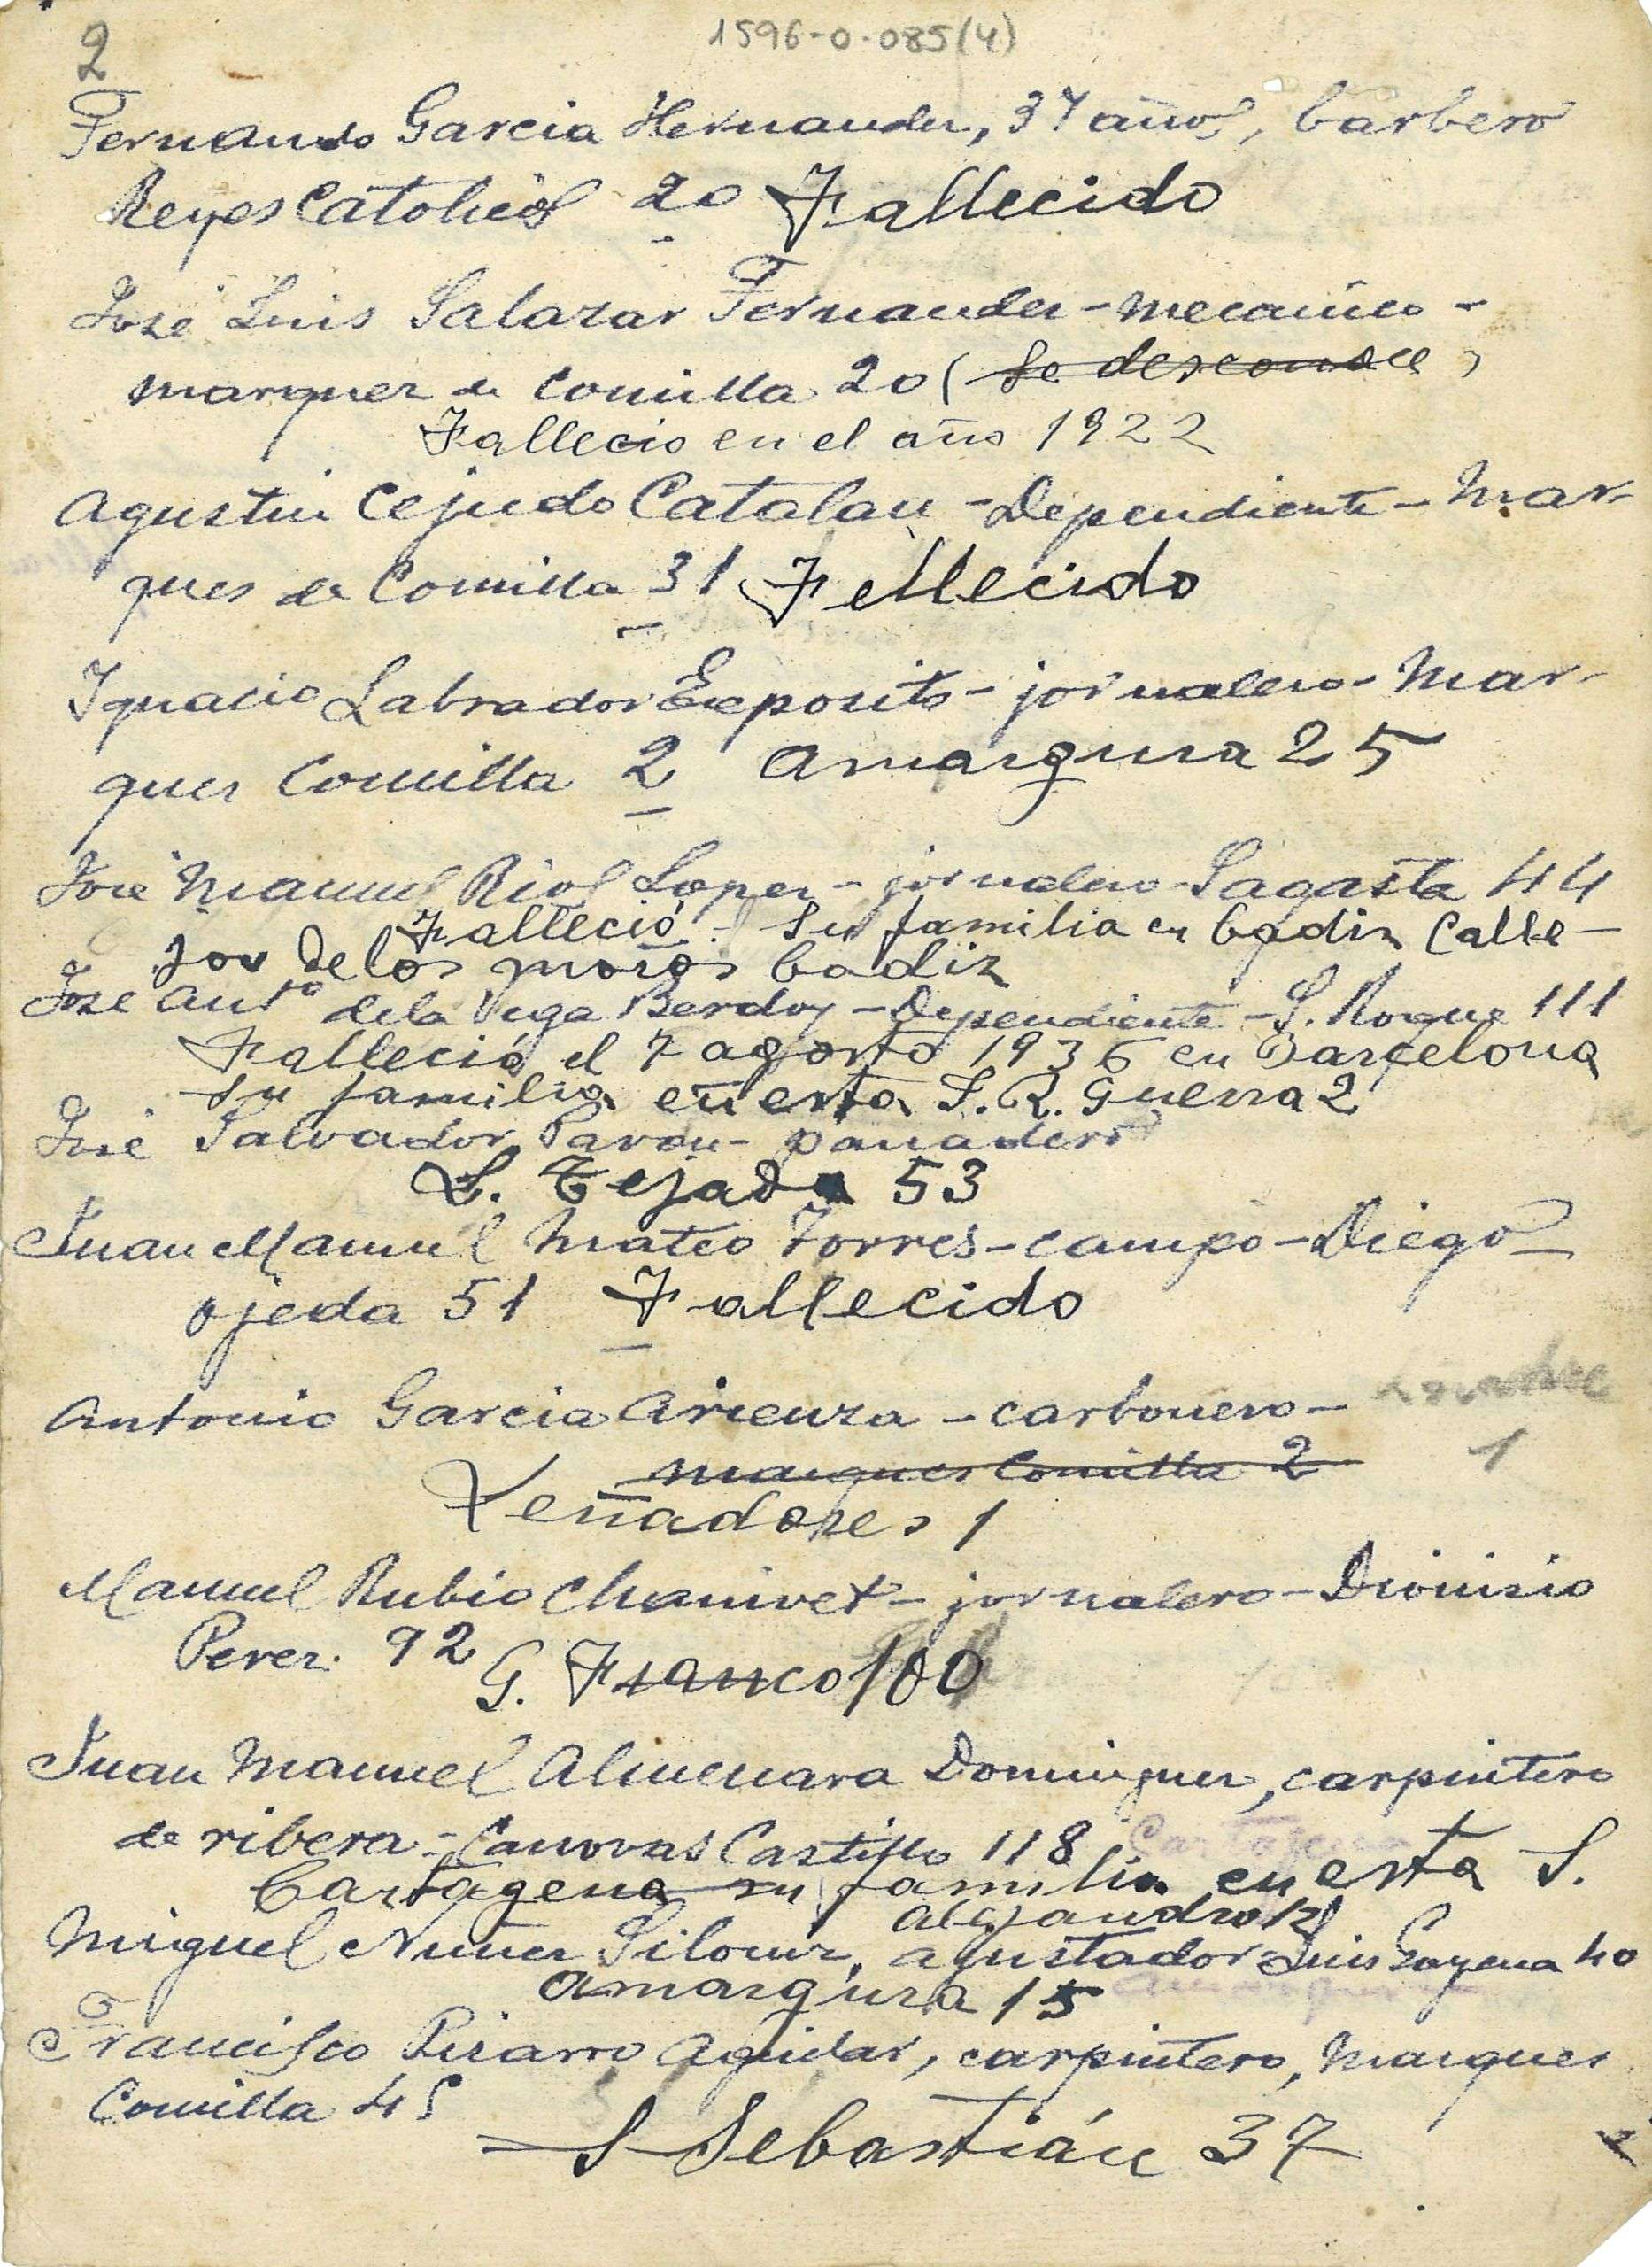 1596-0-085(4)
2
Fernando Garcia Hernandez, 37 años, barbero
Reyes Catolicos 20 Fallecido
José Luis Salazar Fernandez - mecanico -
marquez de Comilla 20 ( Se desconoce )
Fallecio en el año 1922
Agustin Cejudo Catalan - Dependiente - Mar-
ques de Comilla 31 Fellecido
Ignacio Labrador Exposito - jornalero - Mar-
ques Comilla 2 Amargura 25
José Manuel Lopez - jornalero - Sagasta 44
Falleció. Su familia en Cadiz Calle-
jon de los moros Cadiz
José Antº de la Vega Berdoy - Dependiente - S. Roque 111
Falleció el 7 agosto 1936 en Barcelona
su familia en esta S.R. Guerra 2
José Salvador Pavon - panadero
S. Tejada 53
Juan Manuel Mateo Torres - campo - Diego
Ojeda 51 Fallecido
Antonio Garcia Arienza - carbonero -
1
marques Comilla 2
Leñadores 1
Manuel Rubio Chanivet - jornalero - Dionisio
Perez. 92 G. Franco 100
Juan Manuel Almenara Dominguez, carpintero
de ribera - Canovas Castillo 118 Cartagena
Cartagena su familia en esta S.
Alejandro 12
Miguel Nuñez, ajustador - Luis 40
Amargura 15
Francisco Pizarro Aguidar, carpintero, Marques
Comilla 45
S Sebastián 37